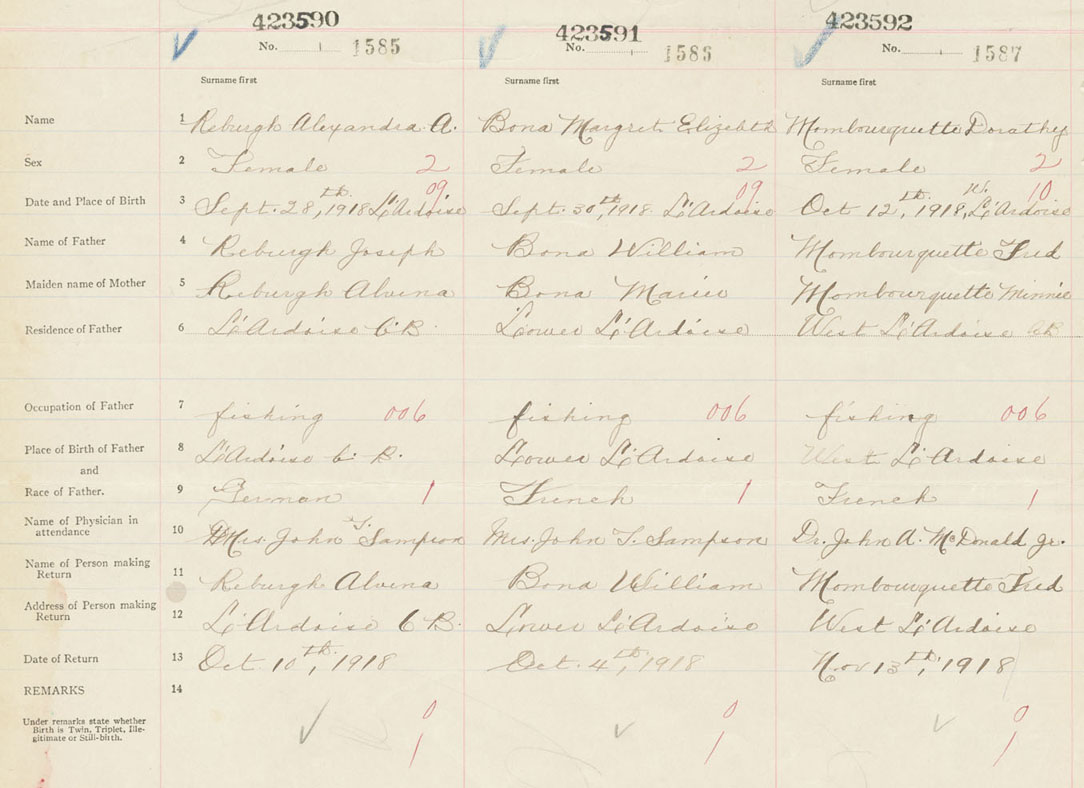 423590 423591 423592
No. 1 1585 No. 1586 No. 1587
Surname first Surname first Surname first
Name 1 Reburgh Alexandra A. Bona Margret Elizebth Mombourquette Dorathy
Sex 2 Female 2 Female 2 Female 2
09 09 10
Date and Place of Birth 3 Sept. 28,th 1918 L'Ardoise Sept. 30th, 1918 L'Ardoise Oct 12th, 1918, W. L'Ardoise
Name of Father 4 Reburgh Joseph Bona William Mombourquette Fred
Maiden name of Mother 5 Reburgh Alvina Bona Mombourquette Minnie
Residence of Father 6 L'Ardoise C. B. Lower L'Ardoise West L'Ardoise C B
Occupation of Father 7 fishing 006 fishing 006 fishing 006
Place of Birth of Father 8 L'Ardoise C. B. Lower L'Ardoise West L'Ardoise
and
Race of Father. 9 German 1 French 1 French 1
Name of Physician in attendance 10 Mrs. John T. Sampson Mrs. John T. Sampson Dr. John A. McDonald Jr.
Name of Person making Return 11 Reburgh Alvina Bona William Mombourquette Fred
Address of Person making Return 12 L'Ardoise C B. Lower L'Ardoise West L'Ardoise
Date of Return 13 Oct. 10th, 1918 Oct. 4th, 1918 Nov 13th, 1918
REMARKS 14
Under remarks state whether
Birth is Twin, Triplet, Ille-
gitimate or Still-birth.
0 0 0
1 1 1